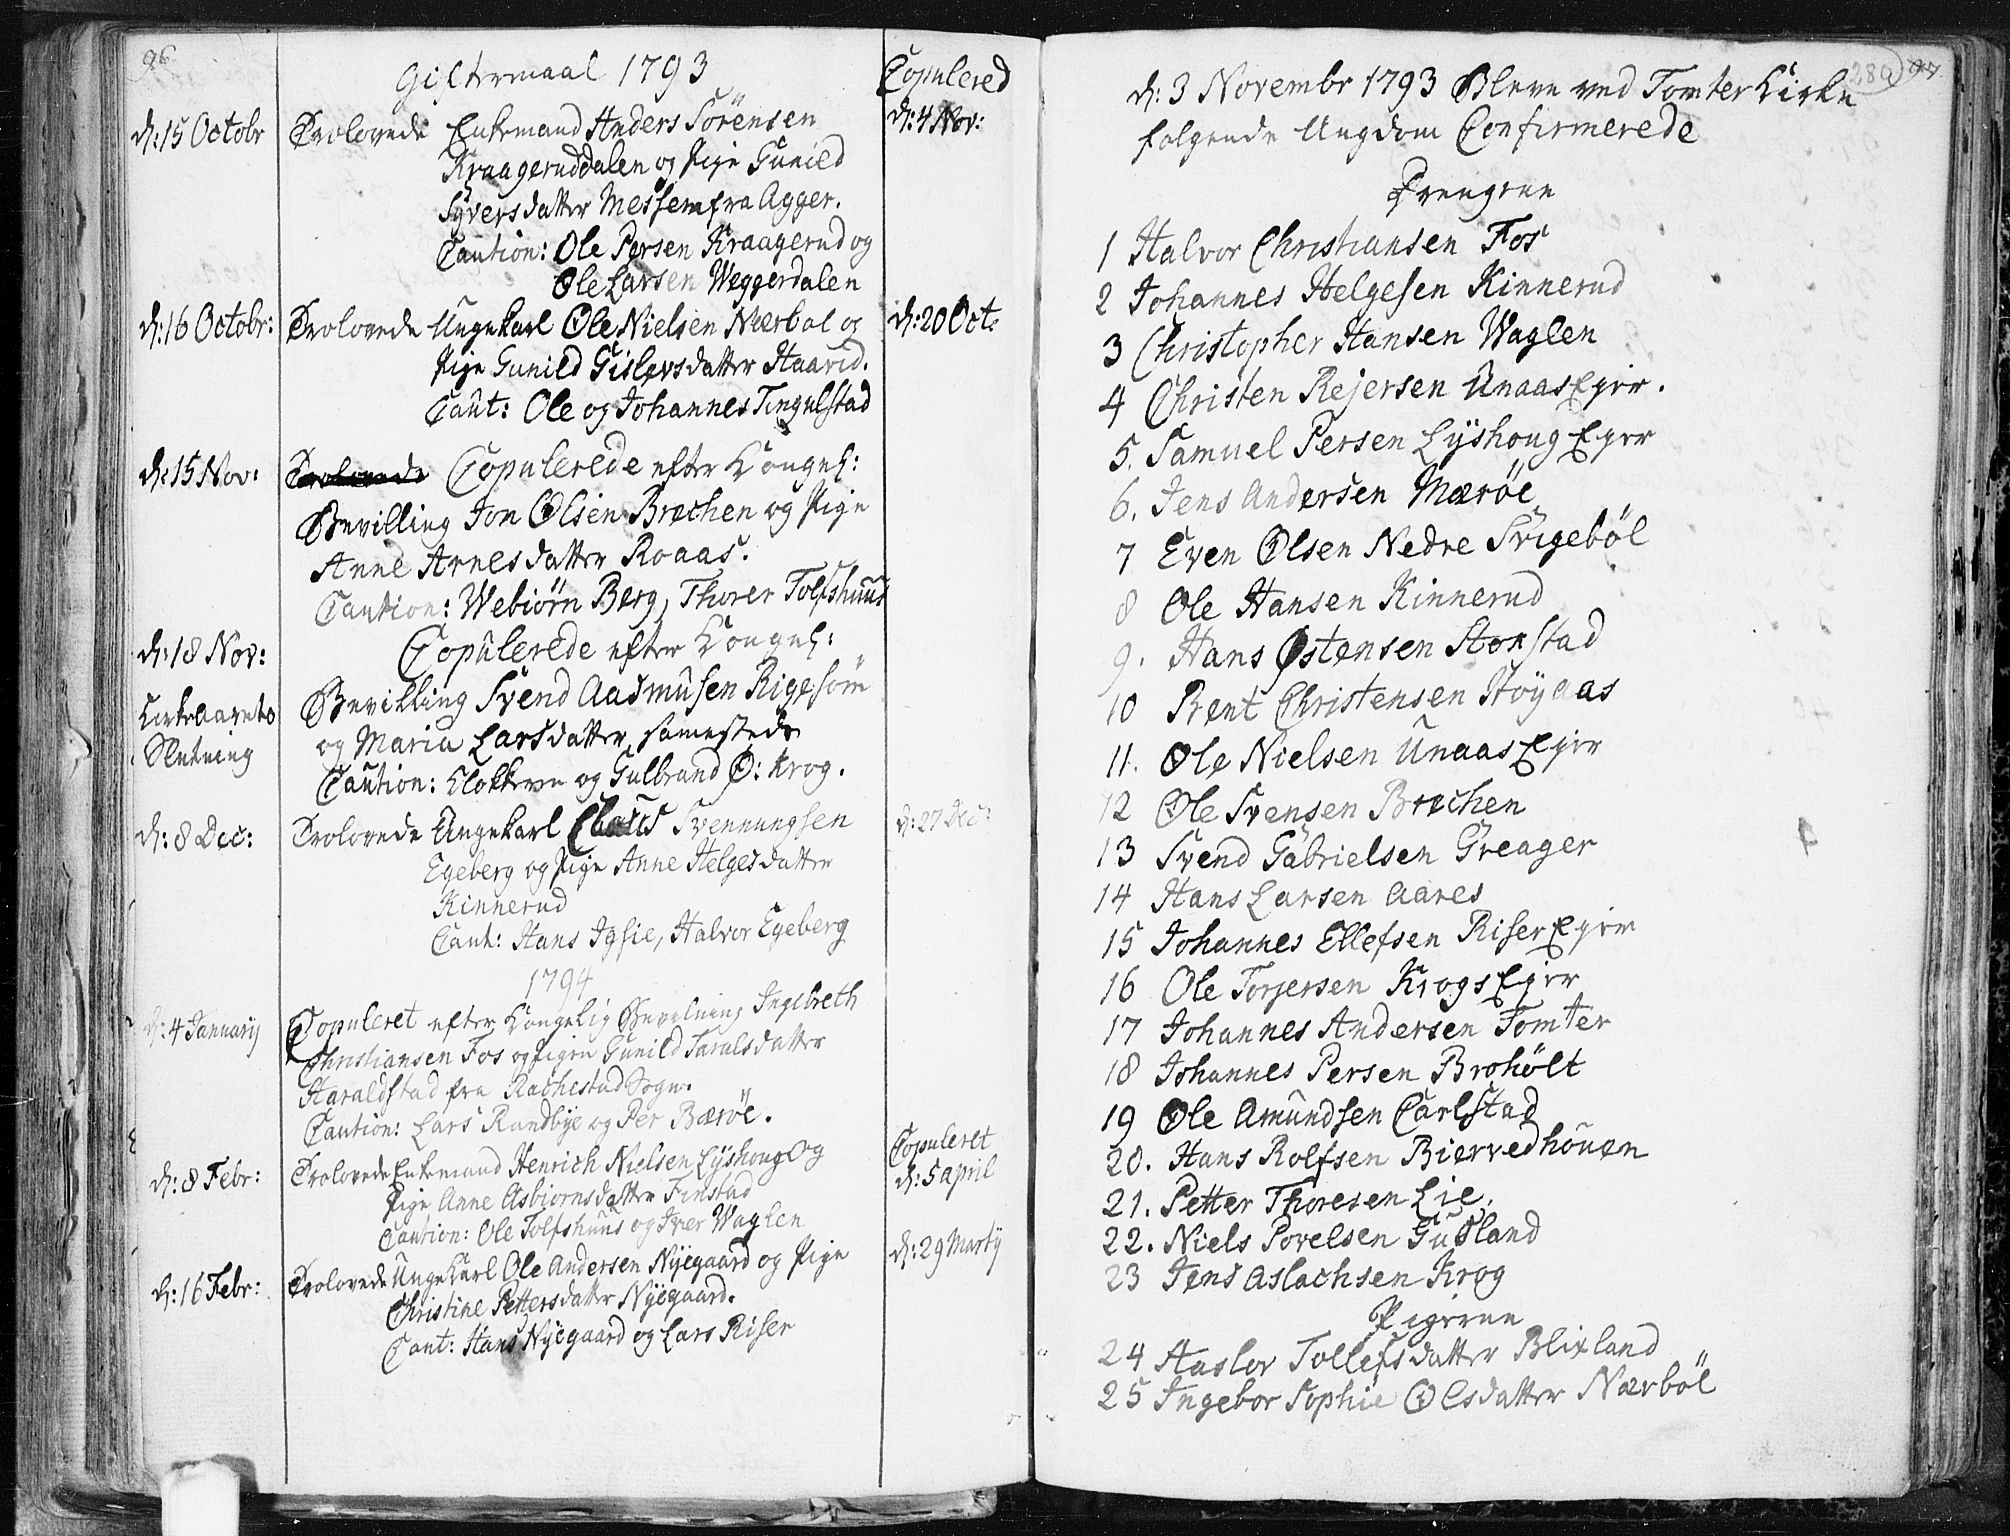 96.
Giftermaal 1793
Copulered
d: 15 Octobr Trolovede Enkemand Anders Sörensen
d: 4 Nov:
Kraageruddalen og Pige Gunild
Syversdatter Messem fra Agger.
Caution: Ole Persen Kraagerud og
Ole Larsen Weggerdalen
d: 16 Octobr: Trolovede Ungekarl Ole Nielsen Nærbøl og
d: 20 Oct:
Pige Gunild Gislersdatter Haavid.
Caut: Ole og Johannes Tingulstad
d: 15 Nov: Trolovede Copulerede efter Kongel:
Bevilling Jon Olsen Brechen og Pige
Anne Arnesdatter Roaas.
Caution: Webiörn Berg, Thorer Tolfshuus
d: 18 Nov: Copulerede efter Kongel:
Kirkeaarets Slutning
Bevilling Svend Aasmusen Rigesöm
og Maria Larsdatter samesteds
Caution: Klokkeren og Gulbrand Ø: Krog.
d: 8 Dec: Trolovede Ungekarl Claus Svennungsen
d: 27 Dec:
Egeberg og Pige Anne Helgesdatter
Kinnerud
Caut: Hans Igsie, Halvor Egeberg
1794
d: 4 January Copuleret efter Kongelig Bevilning Ingebreth
Christiansen Fos og Pigen Gunild Taralsdatter
Haraldstad fra Rachestad Sogn.
Caution: Lars Randbye og Per Bærøe.
Copuleret
d: 8 Febr: Trolovede Enkemand Henrich Nielsen Lyshoug og
d: 5 April
Pige Anne Asbiornsdatter Finstad
Caution: Ole Tolfshuus og Iver Waglen
d: 16 Febr: Trolovede Ungekarl Ole Andersen Nyegaard og Pige
d: 29 Marty
Christine Pettersdatter Nyegaard.
Caut: Hans Nyegaard og Lars Riser
280 97.
d: 3 Novembr 1793 Bleve ved Tomter Kirke
følgende Ungdom Confirmerede
Drengene
1 Halvor Christiansen Fos
2 Johannes Helgesen Kinnerud
3 Christopher Hansen Waglen
4 Christen Rejersen UnaasEger.
5. Samuel Persen Lyshoug Eger
6. Jens Andersen Mæröe
7 Even Olsen Nedre Svigeböl
8 Ole Hansen Kinnerud
9. Hans Østensen Stonstad
10 Bent Christensen Höyaas
11. Ole Nielsen UnaasEger
12 Ole Svensen Brechen
13 Svend Gabrielsen Greager
14 Hans Larsen Aares
15 Johannes Ellefsen RiserEger
16 Ole Torjersen KrogsEger
17 Johannes Andersen Tomter
18 Johannes Persen Brohölt
19 Ole Amundsen Carlstad
20. Hans Rolfsen Biervedhouen
21. Petter Thoresen Lie.
22. Niels Povelsen Gudland
23 Jens Aslachsen Krog
Pigerne
24 Aaslov Tollefsdatter Blixland
25 Ingebor Sophie Olsdatter Nærböl